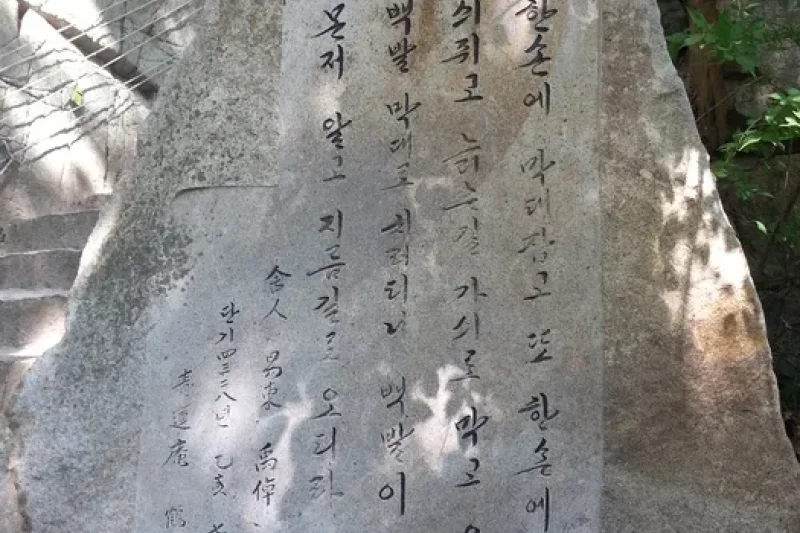 한손에 막대잡고 또 한손에
싀쥐고 늙는길 가싀로 막고
백발 막대로 치려터니 백발이
몬저 알고 지름길로 오더라
舍人 易東 禹倬
단기四三二八년 乙亥
庵 鶴